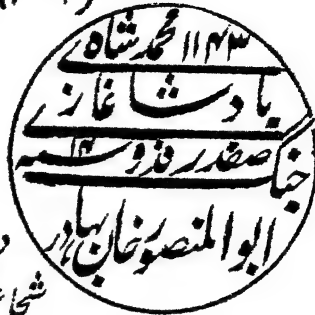 ۱۱۴۳ محمد شاه
بادشاه غازی
صفدر فدوی ۱۴
جنگ
ابوالمنصور خان بهادر
شجاع